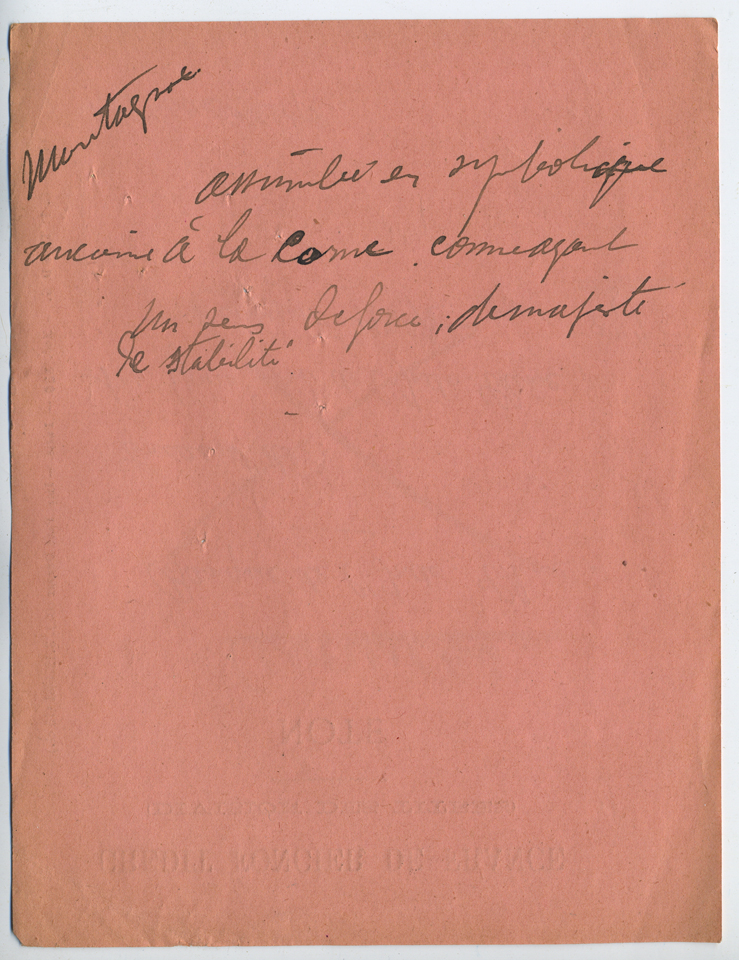 Montagne.
assimilée en symbolique
ancienne à la Corne comme ayant
un sens de force, de majesté
de stabilité.